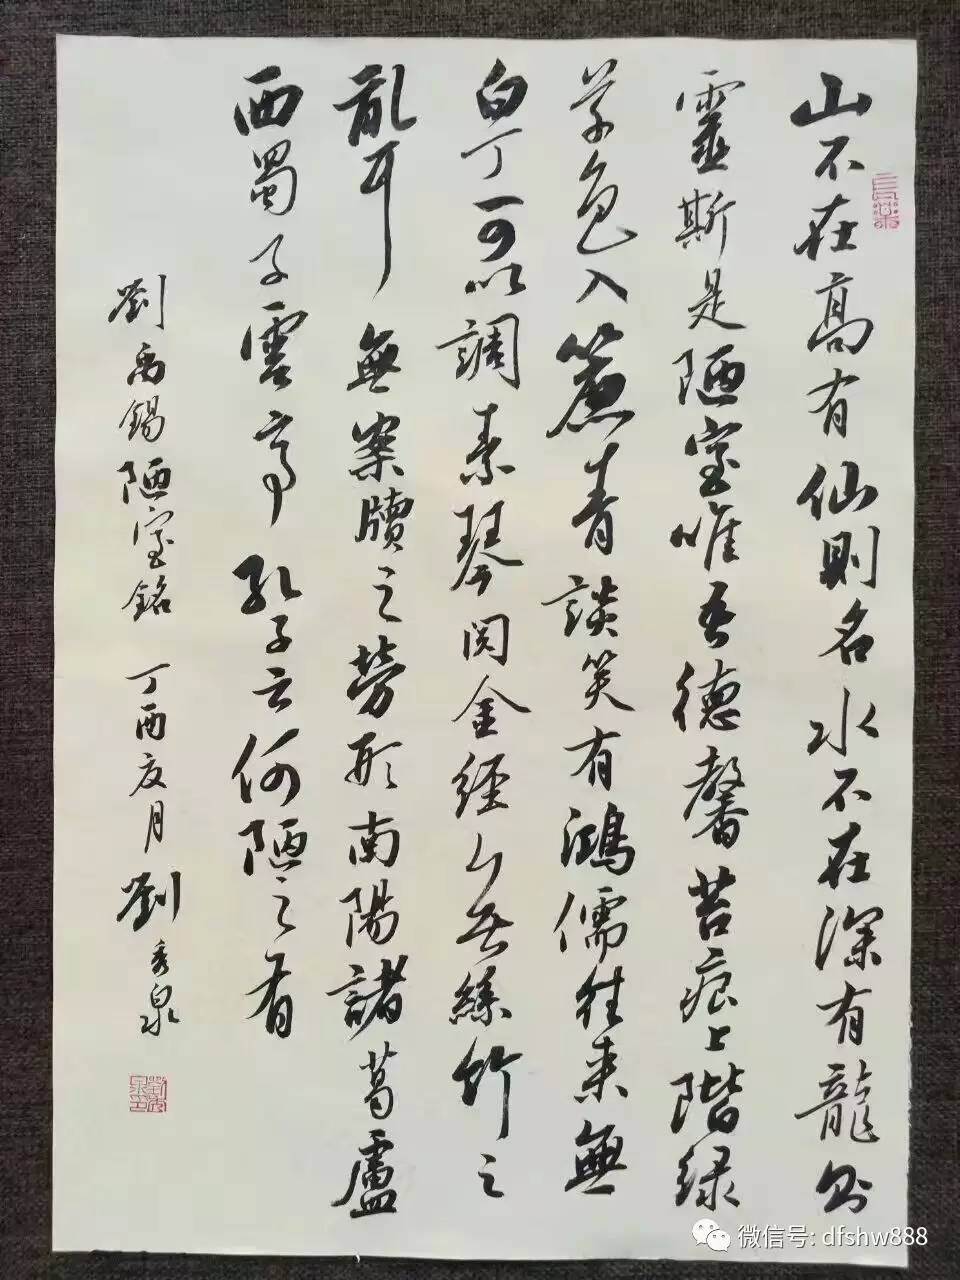 山不在高有仙則名水不在深有龍則
靈斯是陋室唯吾德馨苔痕上階緑
草色入簾青談笑有鴻儒往来無
白丁可以調素琴閲金經無絲竹之
亂耳無案牘之勞形南陽諸葛廬
西蜀子雲亭孔子云何陋之有
劉禹錫陋室銘丁酉夏月劉秀泉
微信号: dfshw888